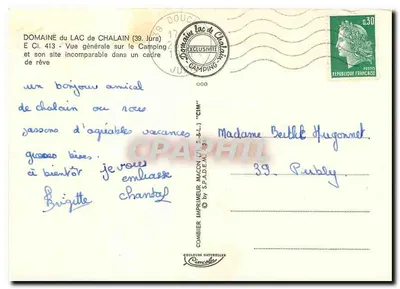 DOMAINE du LAC de CHALAIN (39. Jura)
E Ci. 413 - Vue générale sur le Camping
et son site incomparable dans un cadre
de rêve
39 DOUCIER
17
JURA
Domaine Lac de Chalain
EXCLUSIVITÉ
CAMPING
0,30
REPUBLIQUE FRANÇAISE
un bonjour amical
de chalain ou nous
passons d'agréables vacances
grosses bises.
à bientôt je vous
embrasse
Brigitte chantal
Madame Berthet Hugonnet
39. Publy
COMBIER IMPRIMEUR MACON (S.-&-L.) "CIM"
© by S.P.A.D.E.M.
CARTE POSTALE
CPAPHIL
COULEURS NATURELLES
Cimcolor